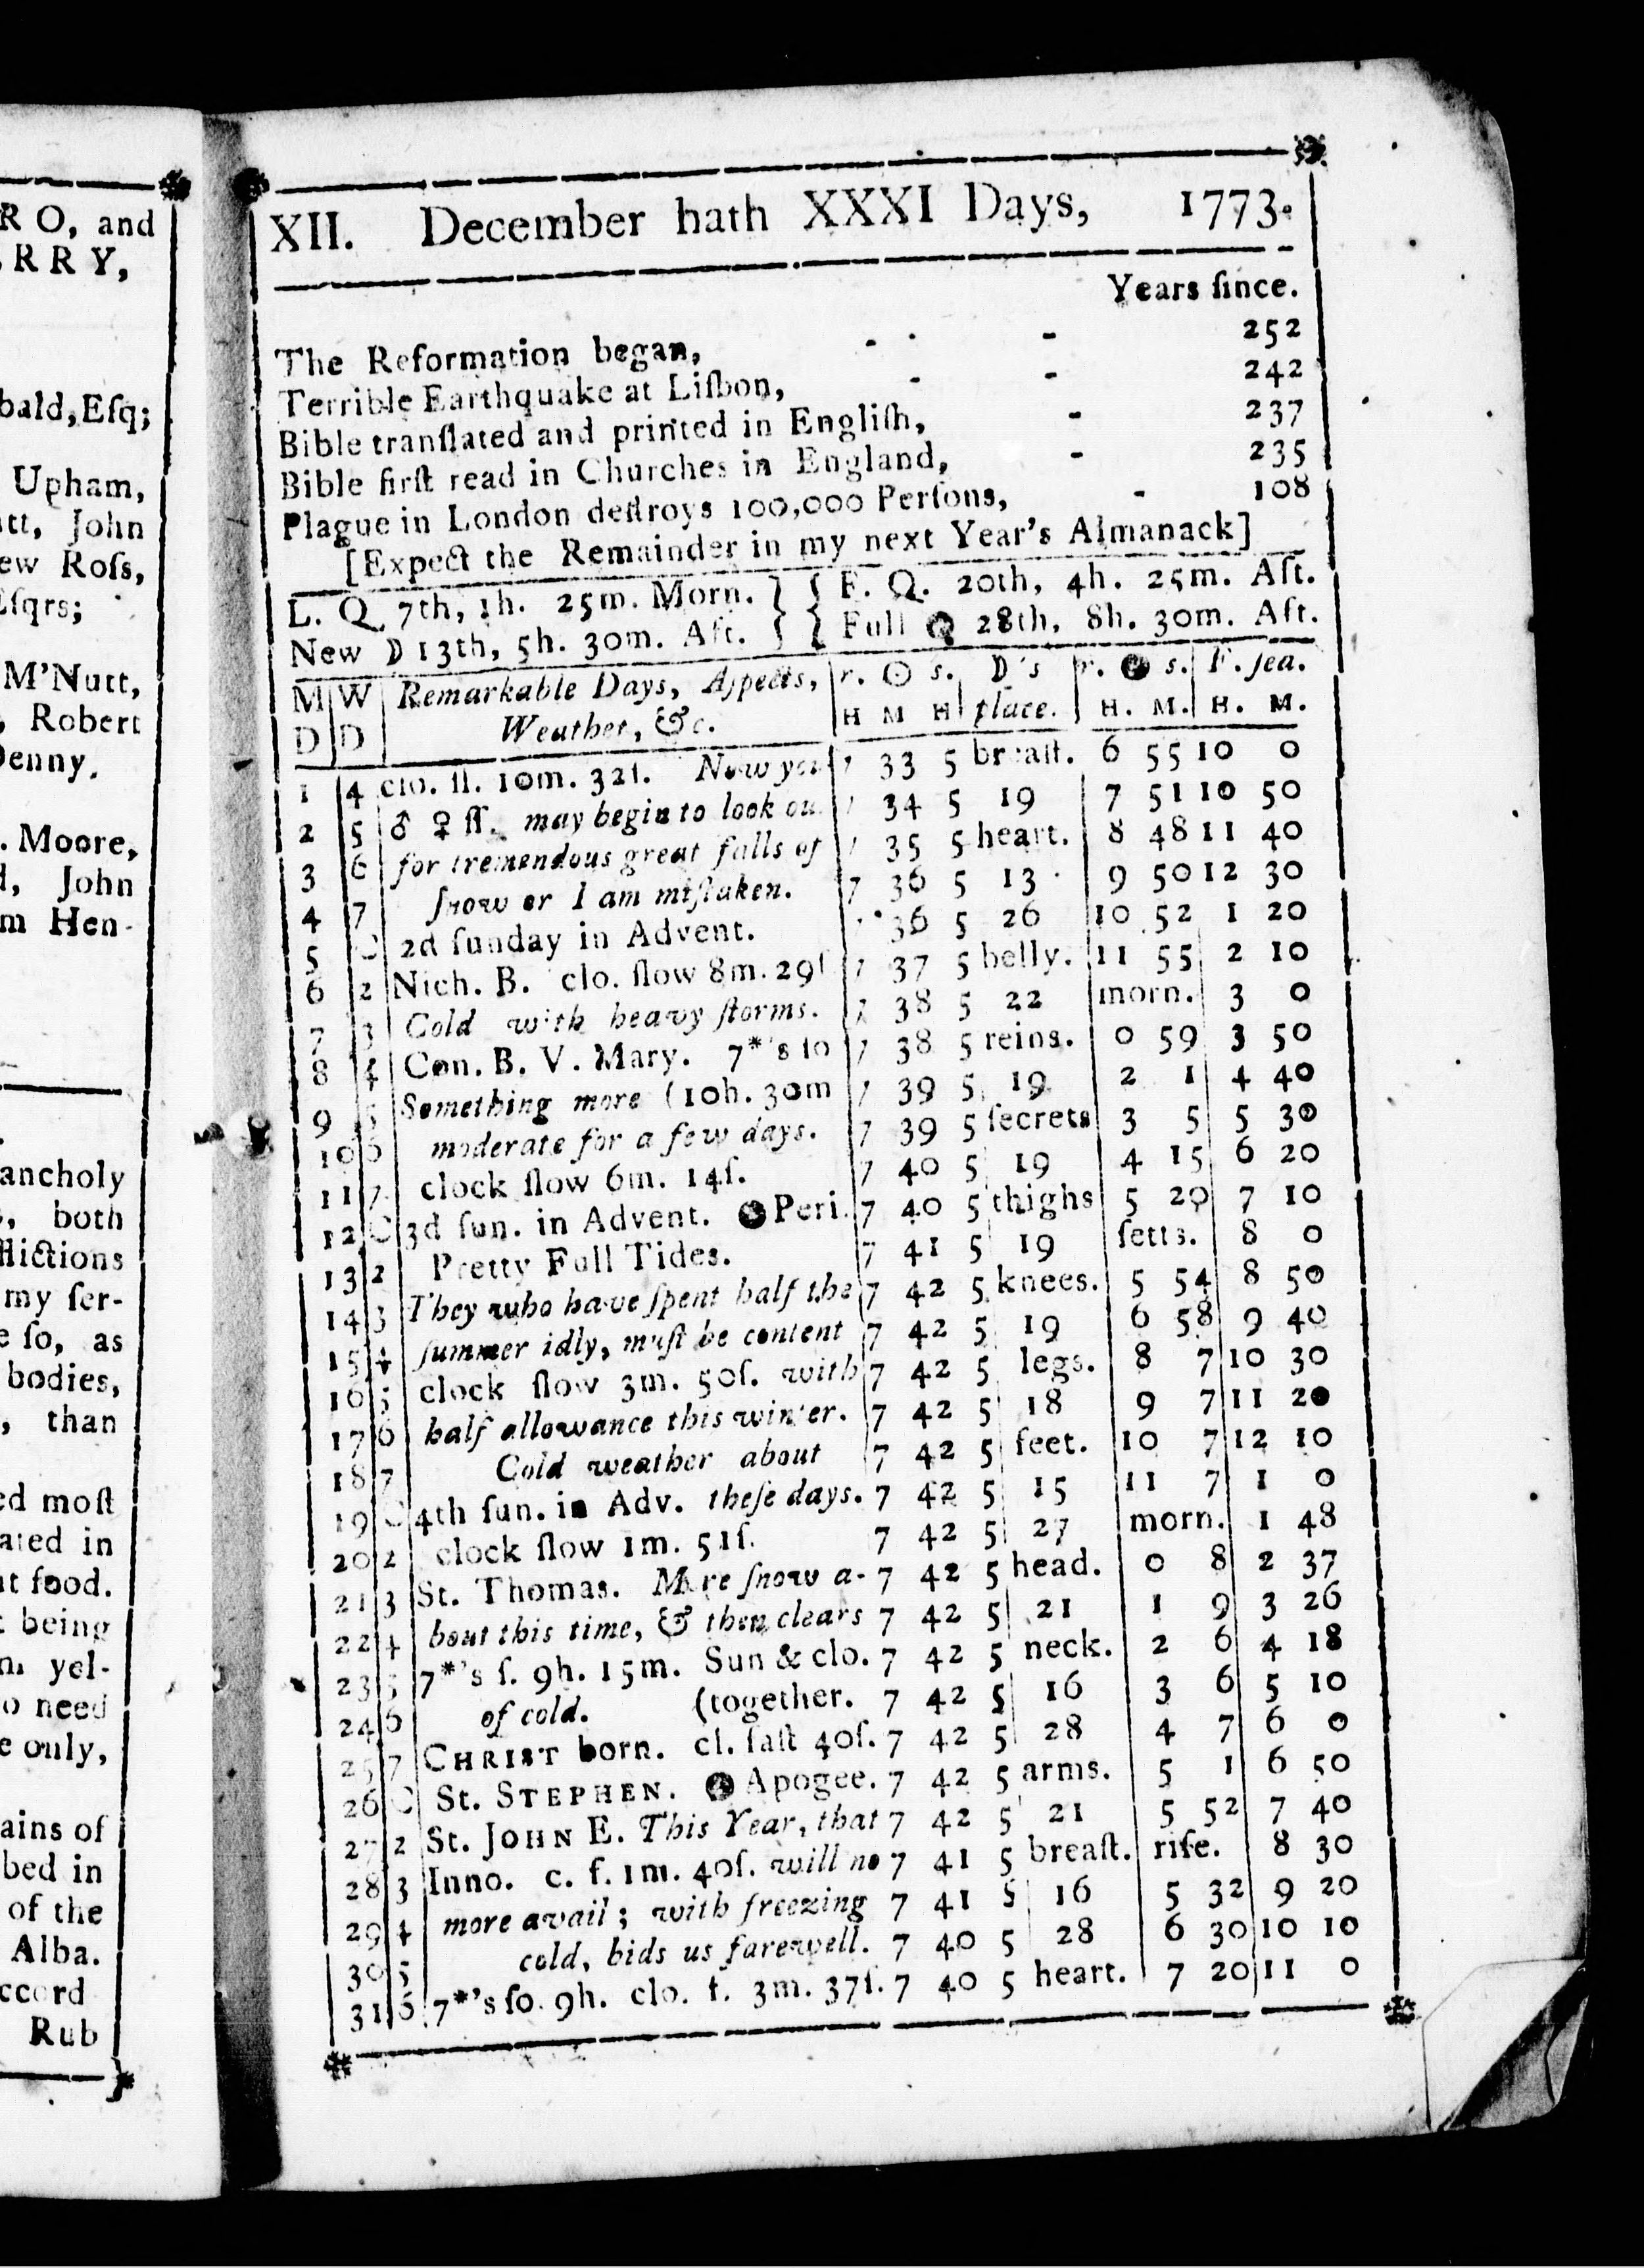 R O, and
R R Y,
bald, Eſq;
Upham,
tt, John
ew Roſs,
Eſqrs;
M'Nutt,
Robert
Denny.
. Moore,
d, John
m Hen-
ancholy
, both
flictions
my ſer-
e ſo, as
bodies,
, than
ed moſt
ated in
ut food.
t being
n yel-
o need
e only,
ains of
bed in
of the
Alba.
ccord
Rub
XII. December hath XXXI Days, 1773.
Years ſince.
The Reformation began, - - 252
Terrible Earthquake at Liſbon, - - 242
Bible tranſlated and printed in Engliſh, - 237
Bible firſt read in Churches in England, - 235
Plague in London deſtroys 100,000 Perſons, - 108
[Expect the Remainder in my next Year's Almanack]
L. Q. 7th, 1h. 25m. Morn. } { F. Q. 20th, 4h. 25m. Aft.
New ☽ 13th, 5h. 30m. Aft. } { Full ● 28th, 8h. 30m. Aft.
M W Remarkable Days, Aſpects, r. ☉ s. ☽'s r. ● s. F. ſea.
D D Weather, &c. H M H place. H. M. H. M.
1 4 clo. ſl. 10m. 32ſ. Now you 7 33 5 breaſt. 6 55 10 0
2 5 ♂ ♀ ſſ. may begin to look ou 7 34 5 19 7 51 10 50
3 6 for tremendous great falls of 7 35 5 heart. 8 48 11 40
4 7 ſnow or I am miſtaken. 7 36 5 13 9 50 12 30
5 C 2d ſunday in Advent. 7 36 5 26 10 52 1 20
6 2 Nich. B. clo. ſlow 8m. 29ſ 7 37 5 belly. 11 55 2 10
7 3 Cold with heavy ſtorms. 7 38 5 22 morn. 3 0
8 4 Con. B. V. Mary. 7*'s ſo 7 38 5 reins. 0 59 3 50
9 5 Something more (10h. 30m 7 39 5 19 2 1 4 40
10 6 moderate for a few days. 7 39 5 ſecrets 3 5 5 30
11 7 clock ſlow 6m. 14ſ. 7 40 5 19 4 15 6 20
12 C 3d ſun. in Advent. ● Peri. 7 40 5 thighs 5 20 7 10
13 2 Pretty Full Tides. 7 41 5 19 ſetts. 8 0
14 3 They who have ſpent half the 7 42 5 knees. 5 54 8 50
15 4 ſummer idly, muſt be content 7 42 5 19 6 58 9 40
16 5 clock ſlow 3m. 50ſ. with 7 42 5 legs. 8 7 10 30
17 6 half allowance this winter. 7 42 5 18 9 7 11 20
18 7 Cold weather about 7 42 5 feet. 10 7 12 10
19 C 4th ſun. in Adv. theſe days. 7 42 5 15 11 7 1 0
20 2 clock ſlow 1m. 51ſ. 7 42 5 27 morn. 1 48
21 3 St. Thomas. More ſnow a- 7 42 5 head. 0 8 2 37
22 4 bout this time, & then clears 7 42 5 21 1 9 3 26
23 5 7*'s ſ. 9h. 15m. Sun & clo. 7 42 5 neck. 2 6 4 18
24 6 of cold. (together. 7 42 5 16 3 6 5 10
25 7 CHRIST born. cl. faſt 40ſ. 7 42 5 28 4 7 6 0
26 C St. STEPHEN. ● Apogee. 7 42 5 arms. 5 1 6 50
27 2 St. JOHN E. This Year, that 7 42 5 21 5 52 7 40
28 3 Inno. c. f. 1m. 40ſ. will no 7 41 5 breaſt. riſe. 8 30
29 4 more avail; with freezing 7 41 5 16 5 32 9 20
30 5 cold, bids us farewell. 7 40 5 28 6 30 10 10
31 6 7*'s ſo. 9h. clo. f. 3m. 37ſ. 7 40 5 heart. 7 20 11 0